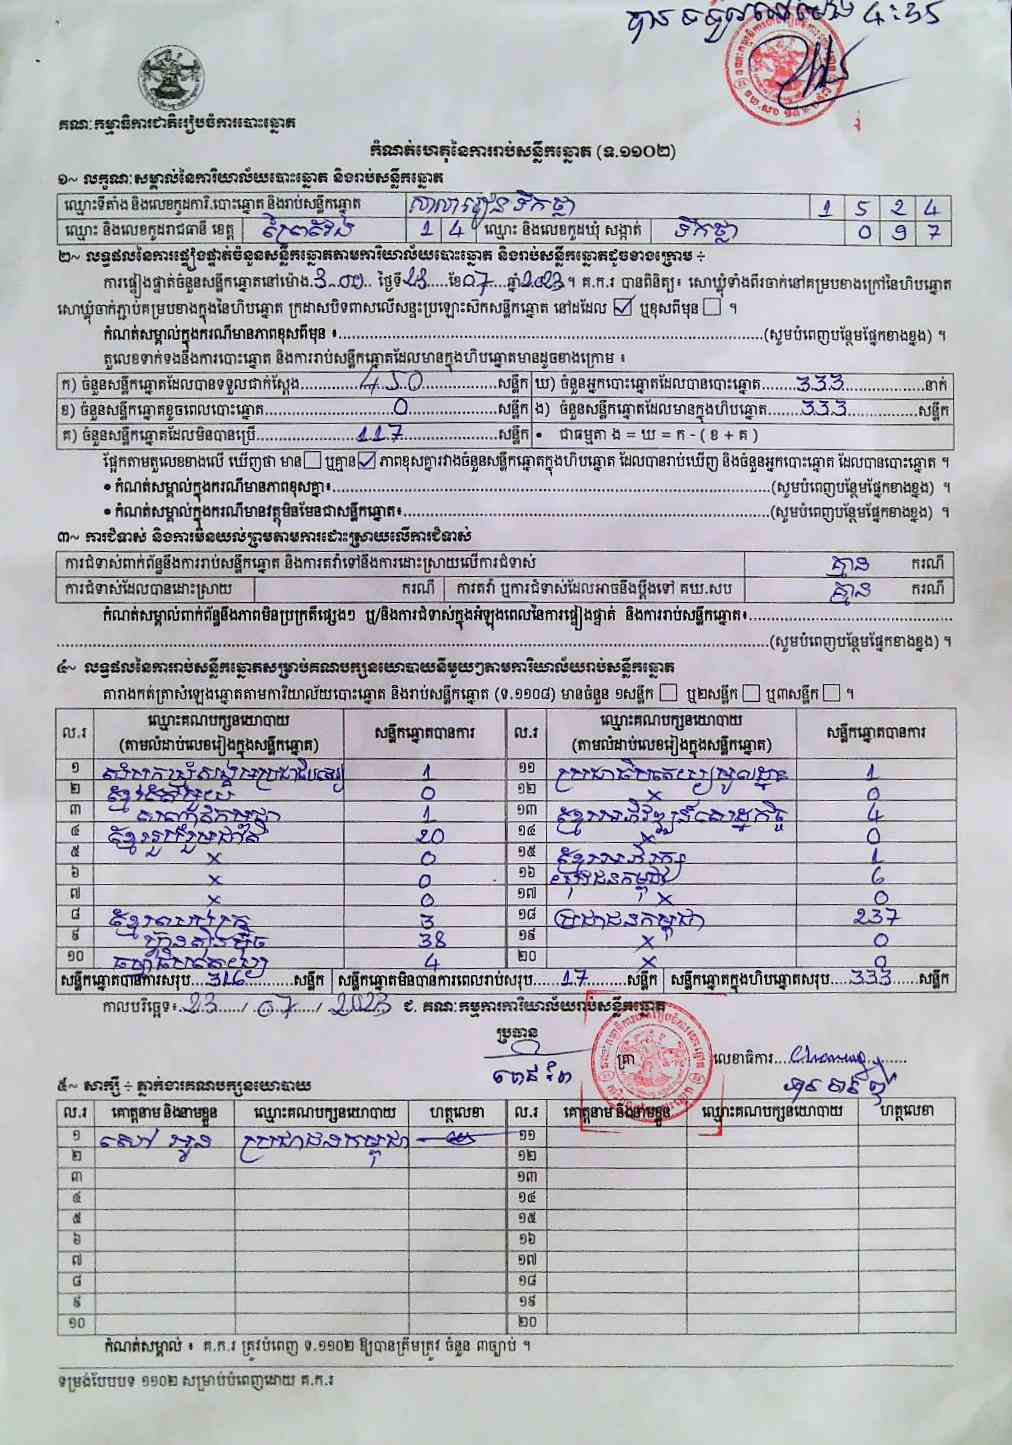 បានទទួលនៅម៉ោង 4:35
គណៈកម្មាធិការជាតិរៀបចំការបោះឆ្នោត
កំណត់ហេតុនៃការរាប់សន្លឹកឆ្នោត (ទ.១១០២)
១~ លក្ខណៈសម្គាល់នៃការិយាល័យបោះឆ្នោត និងរាប់សន្លឹកឆ្នោត
ឈ្មោះទីតាំង និងលេខកូដការិ.បោះឆ្នោត និងរាប់សន្លឹកឆ្នោត សាលារៀន ទឹកថ្លា 1 5 2 4
ឈ្មោះ និងលេខកូដរាជធានី ខេត្ត ព្រៃវែង 1 4 ឈ្មោះ និងលេខកូដឃុំ សង្កាត់ ទឹកថ្លា 0 9 7
២~ លទ្ធផលនៃការផ្ទៀងផ្ទាត់ចំនួនសន្លឹកឆ្នោតតាមការិយាល័យបោះឆ្នោត និងរាប់សន្លឹកឆ្នោតដូចខាងក្រោម ÷
ការផ្ទៀងផ្ទាត់ចំនួនសន្លឹកឆ្នោតនៅម៉ោង 3:00 ថ្ងៃទី 23 ខែ 07 ឆ្នាំ 2023 ។ គ.ក.រ បានពិនិត្យ៖ សោឃ្លុំទាំងពីរចាក់នៅគម្របខាងក្រៅនៃហិបឆ្នោត
សោឃ្លុំចាក់ភ្ជាប់គម្របខាងក្នុងនៃហិបឆ្នោត ក្រដាសបិទពាសលើសន្ទះប្រឡោះស៊កសន្លឹកឆ្នោត នៅដដែល ☑ ឬខុសពីមុន ☐ ។
កំណត់សម្គាល់ក្នុងករណីមានភាពខុសពីមុន ៖ (សូមបំពេញបន្ថែមផ្នែកខាងខ្នង) ។
តួលេខទាក់ទងនឹងការបោះឆ្នោត និងការរាប់សន្លឹកឆ្នោតដែលមានក្នុងហិបឆ្នោតមានដូចខាងក្រោម ៖
ក) ចំនួនសន្លឹកឆ្នោតដែលបានទទួលជាក់ស្តែង 450 សន្លឹក ឃ) ចំនួនអ្នកបោះឆ្នោតដែលបានបោះឆ្នោត 333 នាក់
ខ) ចំនួនសន្លឹកឆ្នោតខូចពេលបោះឆ្នោត 0 សន្លឹក ង) ចំនួនសន្លឹកឆ្នោតដែលមានក្នុងហិបឆ្នោត 333 សន្លឹក
គ) ចំនួនសន្លឹកឆ្នោតដែលមិនបានប្រើ 117 សន្លឹក • ជាធម្មតា ង = ឃ = ក - ( ខ + គ )
ផ្អែកតាមតួលេខខាងលើ ឃើញថា មាន ☐ ឬគ្មាន ☑ ភាពខុសគ្នារវាងចំនួនសន្លឹកឆ្នោតក្នុងហិបឆ្នោត ដែលបានរាប់ឃើញ និងចំនួនអ្នកបោះឆ្នោត ដែលបានបោះឆ្នោត ។
• កំណត់សម្គាល់ក្នុងករណីមានភាពខុសគ្នា៖ (សូមបំពេញបន្ថែមផ្នែកខាងខ្នង) ។
• កំណត់សម្គាល់ក្នុងករណីមានវត្ថុមិនមែនជាសន្លឹកឆ្នោត៖ (សូមបំពេញបន្ថែមផ្នែកខាងខ្នង) ។
៣~ ការជំទាស់ និងការមិនយល់ព្រមតាមការដោះស្រាយលើការជំទាស់
ការជំទាស់ពាក់ព័ន្ធនឹងការរាប់សន្លឹកឆ្នោត និងការតវ៉ាទៅនឹងការដោះស្រាយលើការជំទាស់ គ្មាន ករណី
ការជំទាស់ដែលបានដោះស្រាយ ករណី ការតវ៉ា ឬការជំទាស់ដែលអាចនឹងប្តឹងទៅ គឃ.សប គ្មាន ករណី
កំណត់សម្គាល់ពាក់ព័ន្ធនឹងភាពមិនប្រក្រតីផ្សេងៗ ឬ/និងការជំទាស់ក្នុងអំឡុងពេលនៃការផ្ទៀងផ្ទាត់ និងការរាប់សន្លឹកឆ្នោត៖
(សូមបំពេញបន្ថែមផ្នែកខាងខ្នង) ។
៤~ លទ្ធផលនៃការរាប់សន្លឹកឆ្នោតសម្រាប់គណបក្សនយោបាយនីមួយៗតាមការិយាល័យរាប់សន្លឹកឆ្នោត
តារាងកត់ត្រាសំឡេងឆ្នោតតាមការិយាល័យបោះឆ្នោត និងរាប់សន្លឹកឆ្នោត (ទ.១១០៨) មានចំនួន ១សន្លឹក ☐ ឬ២សន្លឹក ☐ ឬ៣សន្លឹក ☐ ។
ល.រ ឈ្មោះគណបក្សនយោបាយ (តាមលំដាប់លេខរៀងក្នុងសន្លឹកឆ្នោត) សន្លឹកឆ្នោតបានការ ល.រ ឈ្មោះគណបក្សនយោបាយ (តាមលំដាប់លេខរៀងក្នុងសន្លឹកឆ្នោត) សន្លឹកឆ្នោតបានការ
១ សំបុកឃ្មុំសង្គមប្រជាធិបតេយ្យ 1 ១១ ប្រជាធិបតេយ្យមូលដ្ឋាន 1
២ ខ្មែរតែមួយ 0 ១២ x 0
៣ សាកុនកម្ពុជា 1 ១៣ ខ្មែរអភិវឌ្ឍន៍សេដ្ឋកិច្ច 4
៤ ខ្មែររួបរួមជាតិ 20 ១៤ x 0
៥ x 0 ១៥ ខ្មែរអភិរក្ស 1
៦ x 0 ១៦ យុវជនកម្ពុជា 6
៧ x 0 ១៧ x 0
៨ ខ្មែរឈប់ក្រ 3 ១៨ ប្រជាជនកម្ពុជា 237
៩ ហ៊្វុនស៊ិនប៉ិច 38 ១៩ x 0
១០ ធម្មាធិបតេយ្យ 4 ២០ x 0
សន្លឹកឆ្នោតបានការសរុប 316 សន្លឹក សន្លឹកឆ្នោតមិនបានការពេលរាប់សរុប 17 សន្លឹក សន្លឹកឆ្នោតក្នុងហិបឆ្នោតសរុប 333 សន្លឹក
កាលបរិច្ឆេទ៖ 23 / 07 / 2023 ជ. គណៈកម្មការការិយាល័យរាប់សន្លឹកឆ្នោត
ប្រធាន ត្រា លេខាធិការ
៥~ សាក្សី ÷ ភ្នាក់ងារគណបក្សនយោបាយ
ល.រ គោត្តនាម និងនាមខ្លួន ឈ្មោះគណបក្សនយោបាយ ហត្ថលេខា ល.រ គោត្តនាម និងនាមខ្លួន ឈ្មោះគណបក្សនយោបាយ ហត្ថលេខា
១ សៅ អូន ប្រជាជនកម្ពុជា ១១
២ ១២
៣ ១៣
៤ ១៤
៥ ១៥
៦ ១៦
៧ ១៧
៨ ១៨
៩ ១៩
១០ ២០
កំណត់សម្គាល់ ៖ គ.ក.រ ត្រូវបំពេញ ទ.១១០២ ឱ្យបានត្រឹមត្រូវ ចំនួន ៣ច្បាប់ ។
ទម្រង់បែបបទ ១១០២ សម្រាប់បំពេញដោយ គ.ក.រ